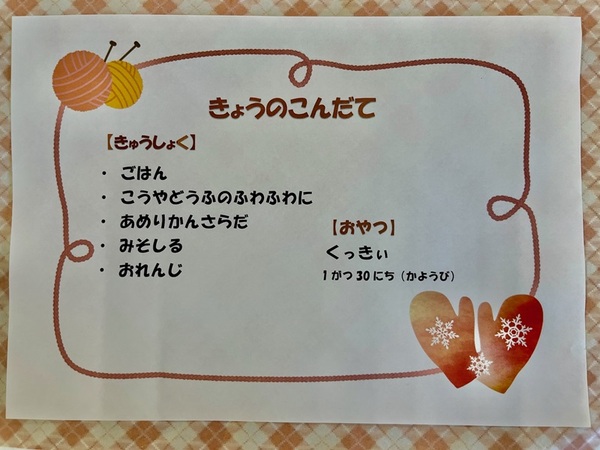 きょうのこんだて
【きゅうしょく】
・ ごはん
・ こうやどうふのふわふわに
・ あめりかんさらだ
・ みそしる
・ おれんじ
【おやつ】
くっきぃ
1がつ30にち（かようび）